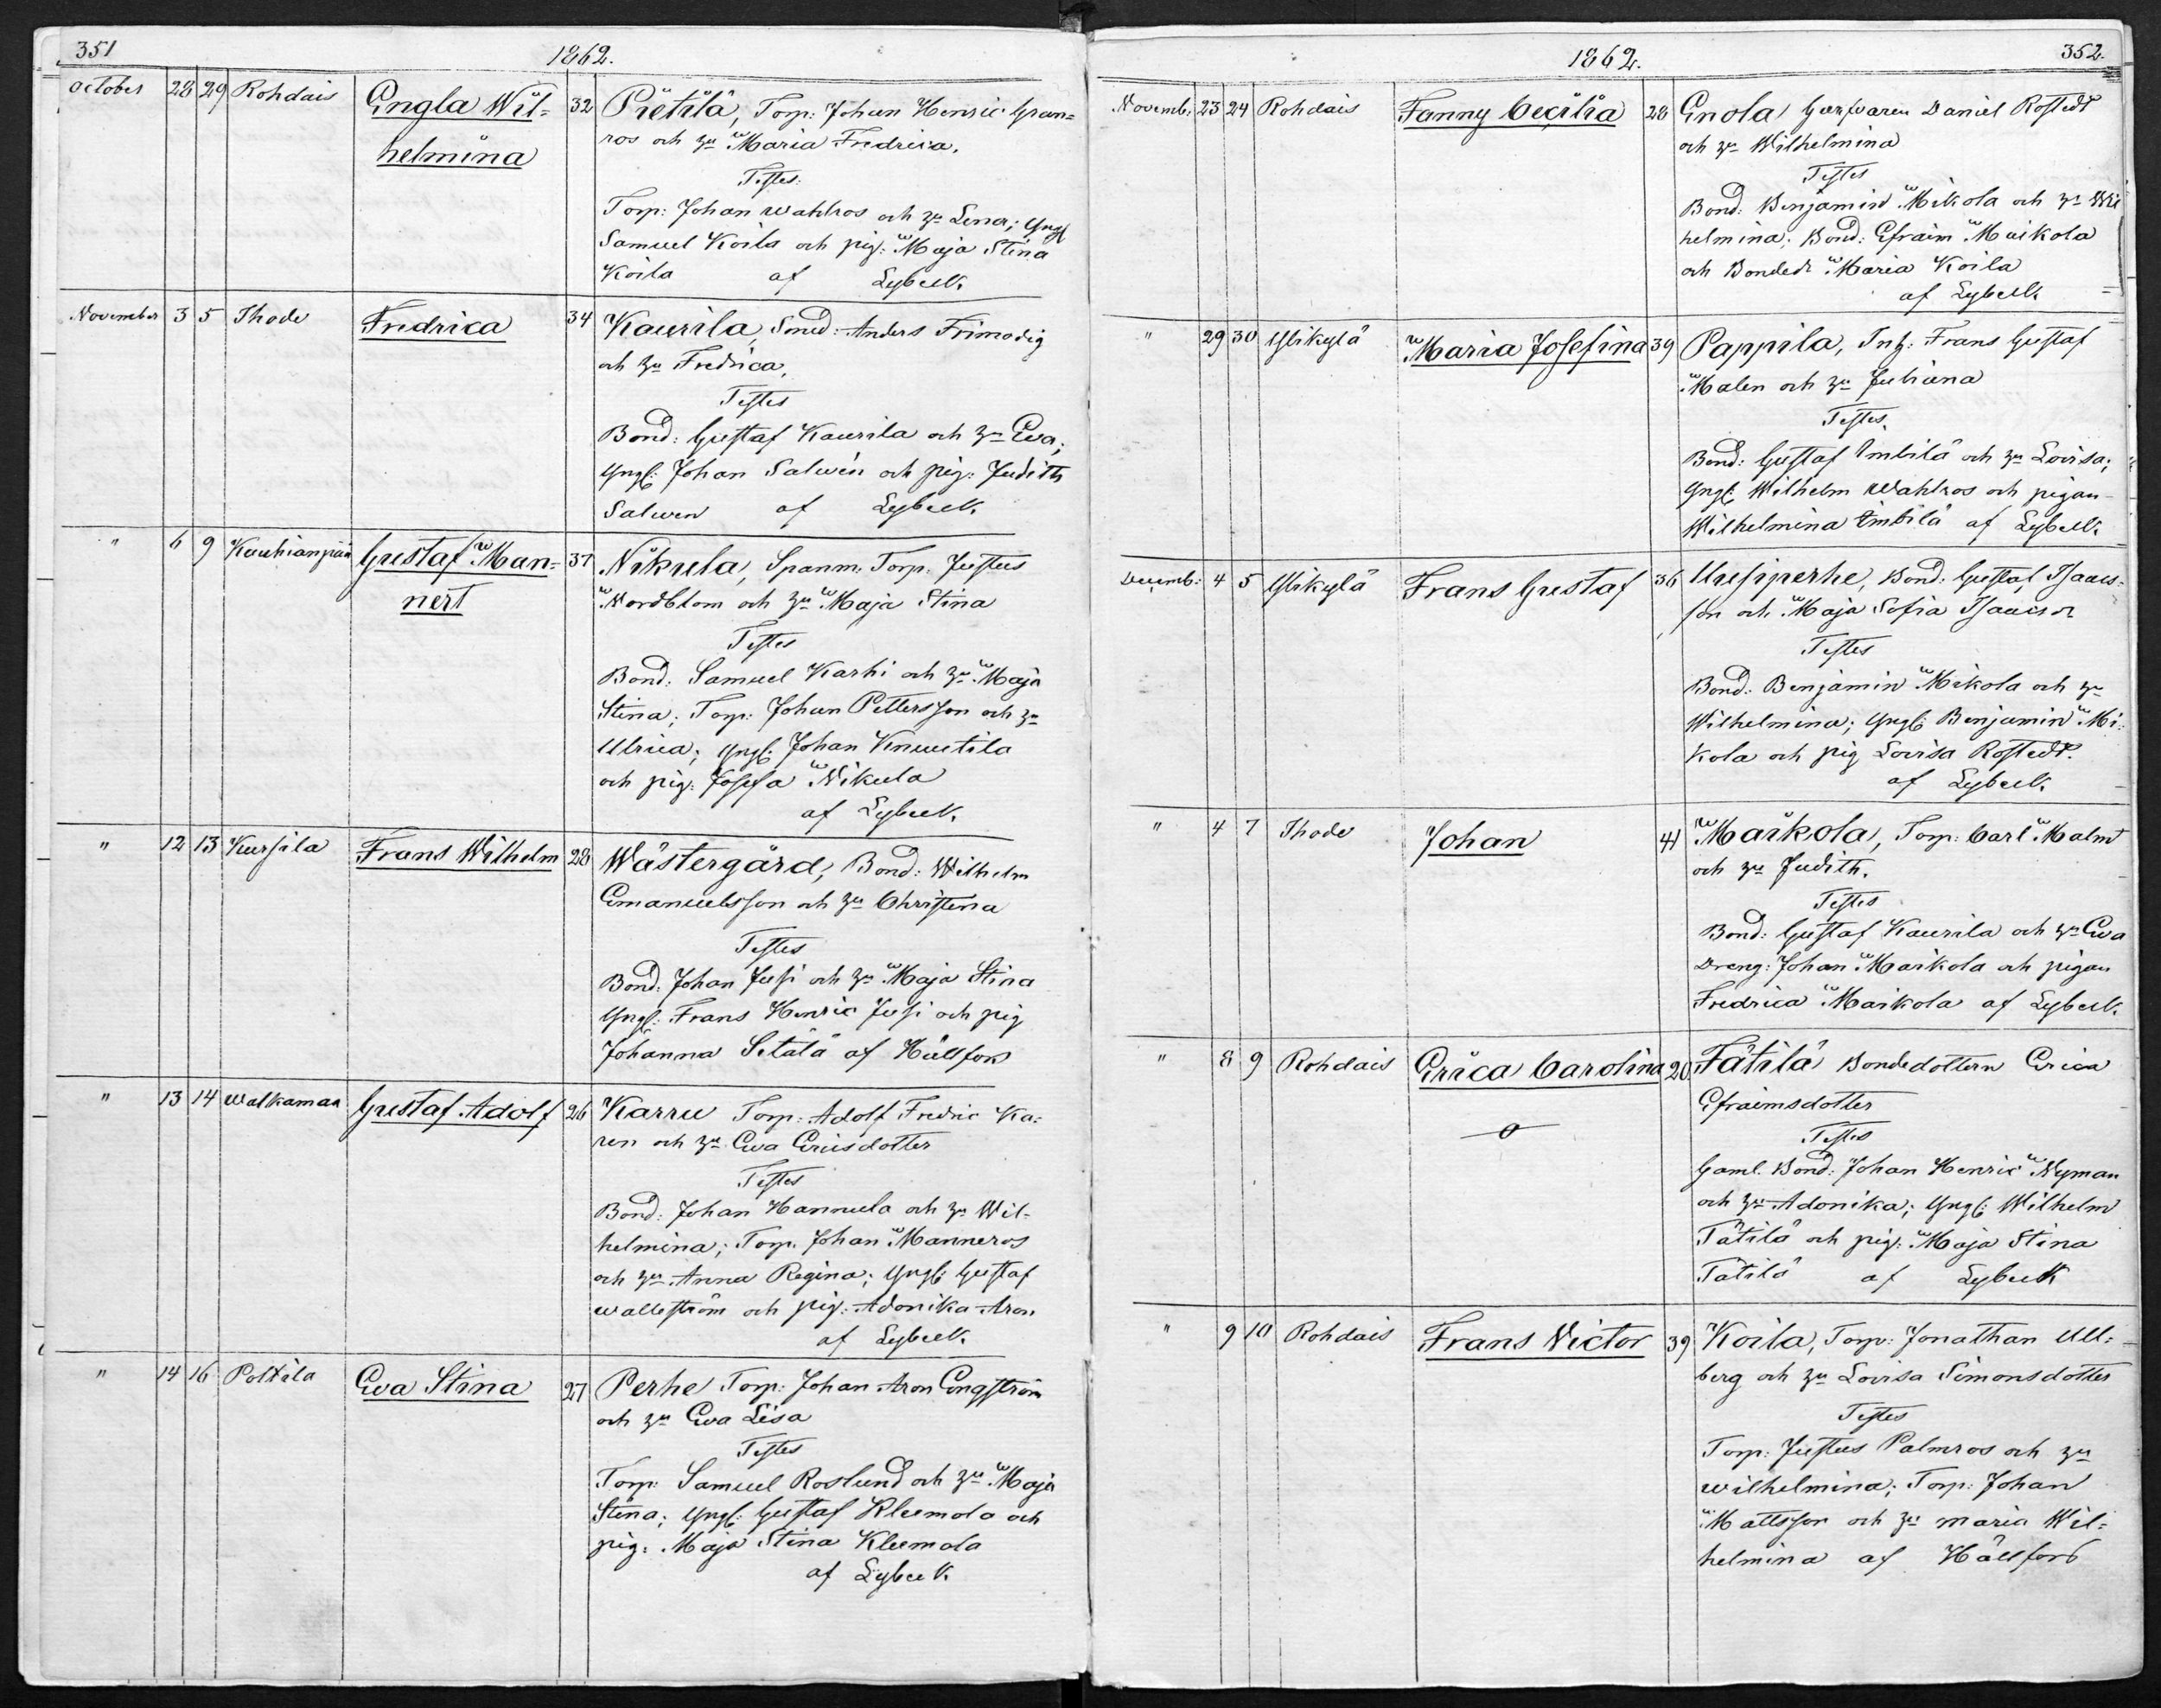 351
1862.
October 28 29 Rohdais Engla Wil= 32 Pietilä, Torp: Johan Henric Gran=
helmina ros och h:u Maria Fredrica.
Testes:
Torp: Johan Wahlros och h:u Lena; Yngl
Samuel Koila och pig: Maja Stina
Koila af Lybeck.
November 3 5 Thode Fredrica 34 Kaurila, Smed: Anders Frimodig
och h:u Fredrica,
Testes
Bond: Gustaf Kaurila och h:u Eva;
Yngl: Johan Salwén och pig: Judith
Salwen af Lybeck.
" 6 9 Kauhianpää Gustaf Man= 37 Nikula, Spanm. Torp: Justus
nert Nordblom och h:u Maja Stina
Testes
Bond: Samuel Karhi och h:u Maja
Stina; Torp: Johan Pettersson och h:u
Ulrica; Yngl: Johan Knuutila
och pig: Josefa Nikula
af Lybeck.
" 12 13 Kuusila Frans Wilhelm 28 Wästergård, Bond: Wilhelm
Emanuelsson och h:u Christina
Testes
Bond: Johan Jusi och h:u Maja Stina
Yngl: Frans Henric Jusi och pig
Johanna Setälä af Hällfors
" 13 14 Walkamaa Gustaf Adolf 26 Karru Torp: Adolf Fredric Ka=
ren och h:u Eva Ericsdotter
Testes
Bond: Johan Hannula och h:u Wil=
helmina; Torp. Johan Manneros
och h:u Anna Regina; Yngl: Gustaf
Walleström och pig: Adonika Aron
af Lybeck.
" 14 16 Polttila Eva Stina 27 Perhe Torp: Johan Aron Engström
och h:u Eva Lisa
Testes
Torp: Samuel Roslund och h:u Maja
Stina; Yngl: Gustaf Kleemola och
pig: Maja Stina Kleemola
af Lybeck.
1862.
352.
Novemb: 23 24 Rohdais Fanny Cecilia 28 Enola Garfvaren Daniel Rostedt
och h:u Wilhelmina
Testes
Bond: Benjamin Mikola och h:u Wil
helmina; Bond: Efraim Maikola
och Bonded: Maria Koila
af Lybeck.
" 29 30 Ylikylä Maria Josefina 39 Pappila, Inh: Frans Gustaf
Malen och h:u Juliana
Testes.
Bond: Gustaf Imbilä och h:u Lovisa;
Yngl: Wilhelm Wahlros och pigan
Wilhelmina Imbilä af Lybeck.
Decemb: 4 5 Ylikylä Frans Gustaf 36 Uusiperhe, Bond: Gustaf Isaacs-
son och Maja Sofia Isaacsdr
Testes
Bond: Benjamin Mikola och h:u
Wilhelmina; Yngl: Benjamin Mi:
kola och pig Lovisa Rostedt.
af Lybeck.
" 4 7 Thode Johan 41 Maikola, Torp: Carl Malmt
och h:u Judith.
Testes
Bond: Gustaf Kaurila och h:u Eva
Dreng: Johan Maikola och pigan
Fredrica Maikola af Lybeck.
" 8 9 Rohdais Erica Carolina 20 Tätilä Bondedottern Erica
Efraimsdotter
Testes
Gaml. Bond: Johan Henric Nyman
och h:u Adonika; Yngl: Wilhelm
Tätilä och pig: Maja Stina
Tätilä af Lybeck
" 9 10 Rohdais Frans Victor 39 Koila, Torp: Jonathan Ull=
berg och h:u Lovisa Simonsdotter
Testes
Torp: Justus Palmros och h:u
Wilhelmina; Torp: Johan
Mattsson och h:u Maria Wil=
helmina af Hällfors